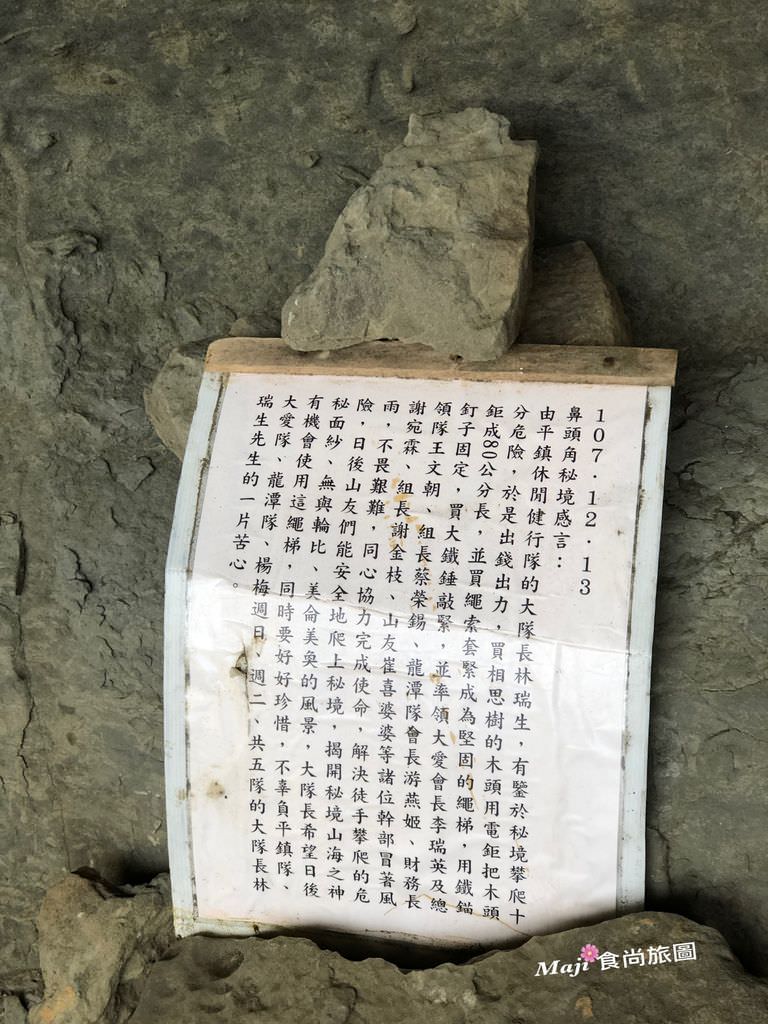 107.12.13
鼻頭角秘境感言：
由平鎮休閒健行隊的大隊長林瑞生，有鑒於秘境攀爬十
分危險，於是出錢出力，買相思樹的木頭用電鉅把木頭
鉅成80公分長，並買繩索套緊成為堅固的繩梯，用鐵錨
釘子固定，買大鐵錘敲緊，並率領大愛會長李瑞英及總
領隊王文朝、組長蔡榮錫、龍潭隊會長游燕姬、財務長
謝宛霖、組長謝金枝、山友崔喜婆婆等諸位幹部冒著風
雨，不畏艱難，同心協力完成使命，解決徒手攀爬的危
險，日後山友們能安全地爬上秘境，揭開秘境山海之神
秘面紗、無與輪比、美侖美奐的風景，大隊長希望日後
有機會使用這繩梯，同時要好好珍惜，不辜負平鎮隊、
大愛隊、龍潭隊、楊梅週日、週二、共五隊的大隊長林
瑞生先生的一片苦心。
Maji 食尚旅圖